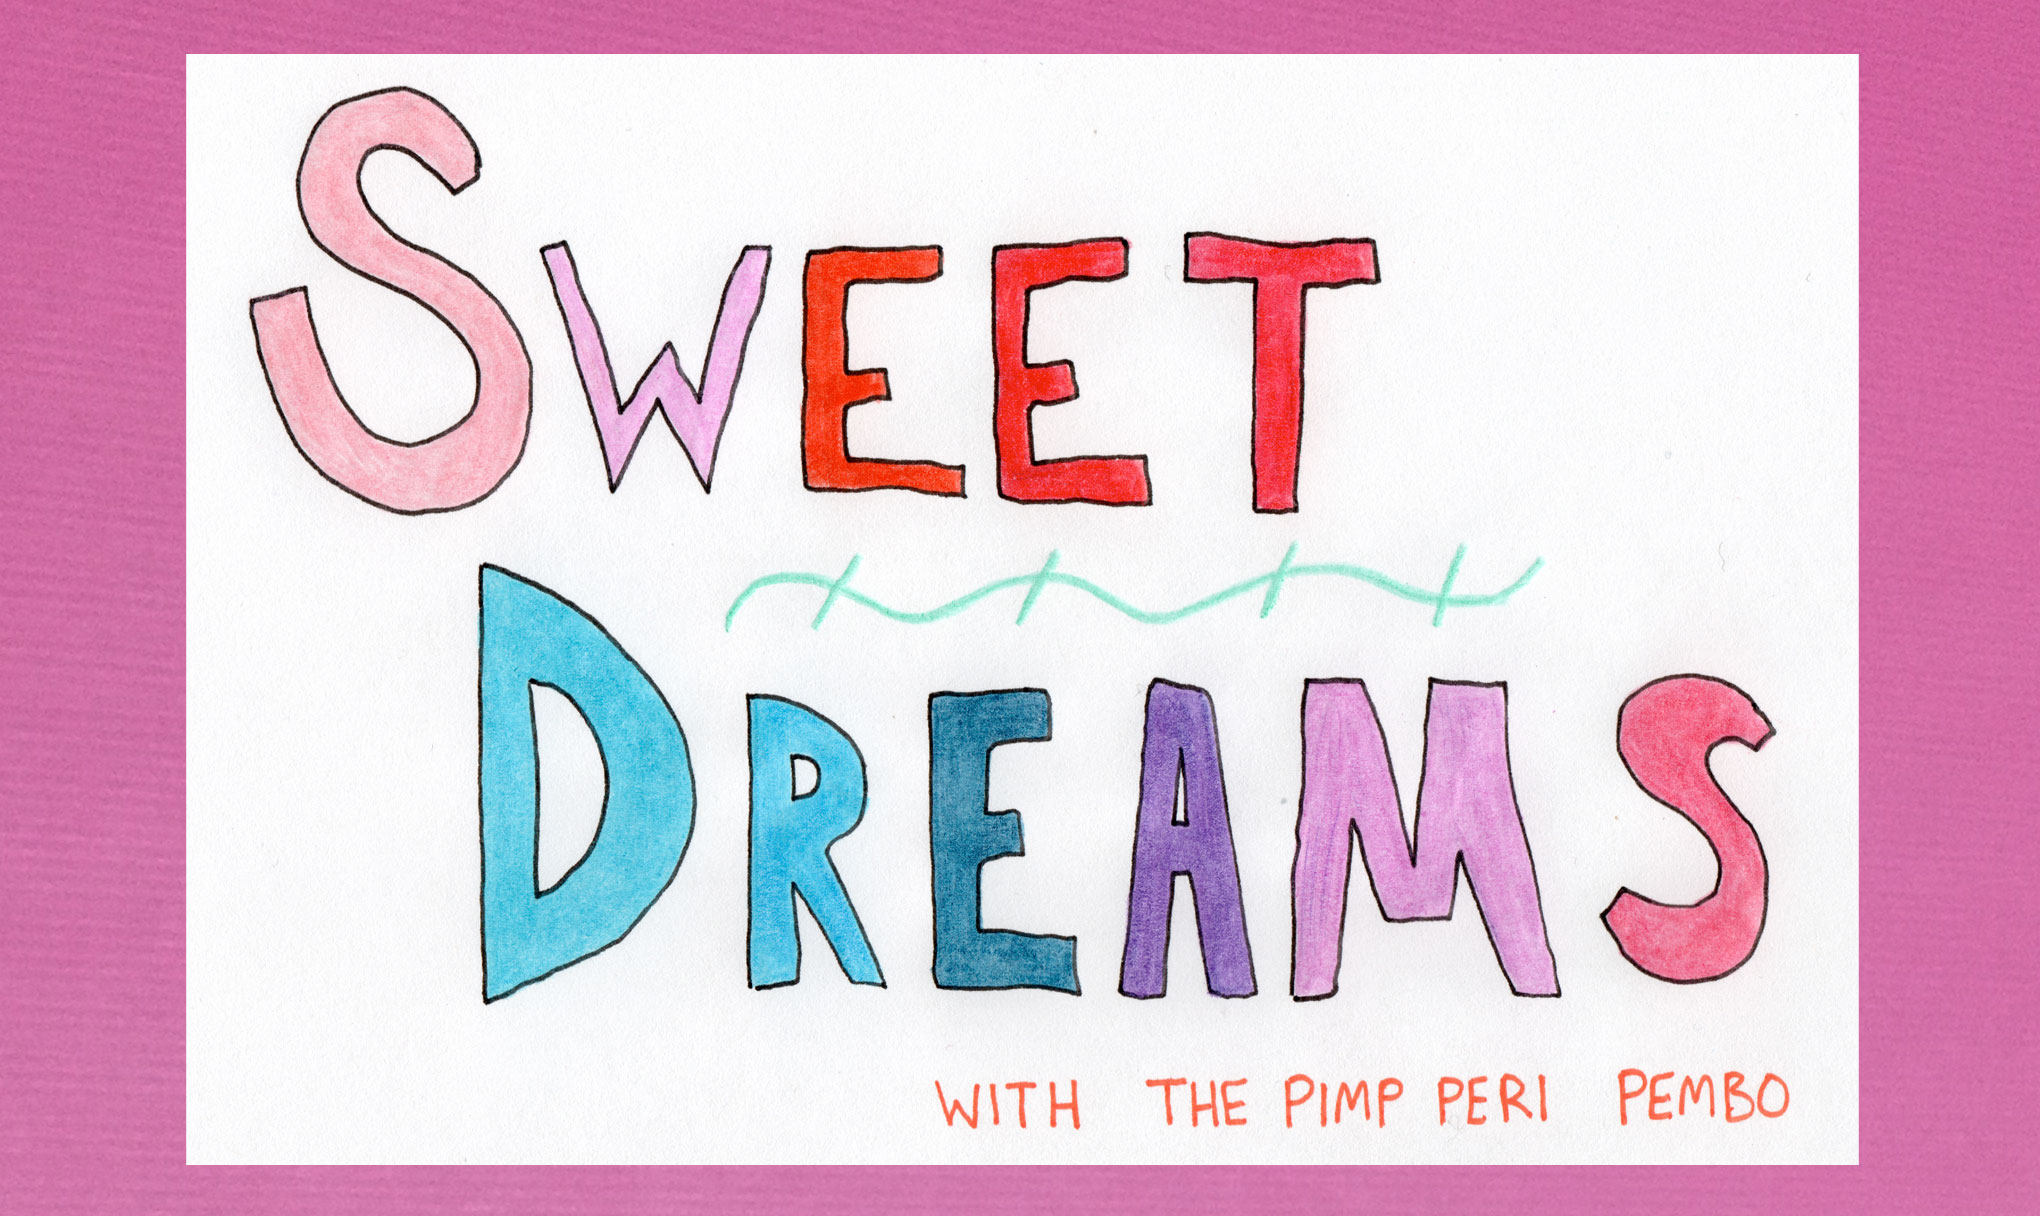 SWEET
DREAMS
WITH THE PIMP PERI PEMBO